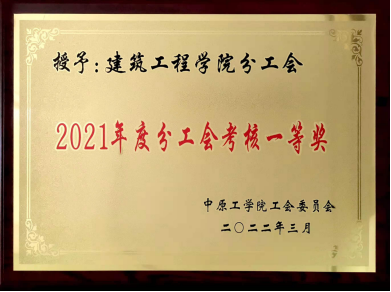 授予:建筑工程学院分工会
2021年度分工会考核一等奖
中原工学院工会委员会
二〇二二年三月